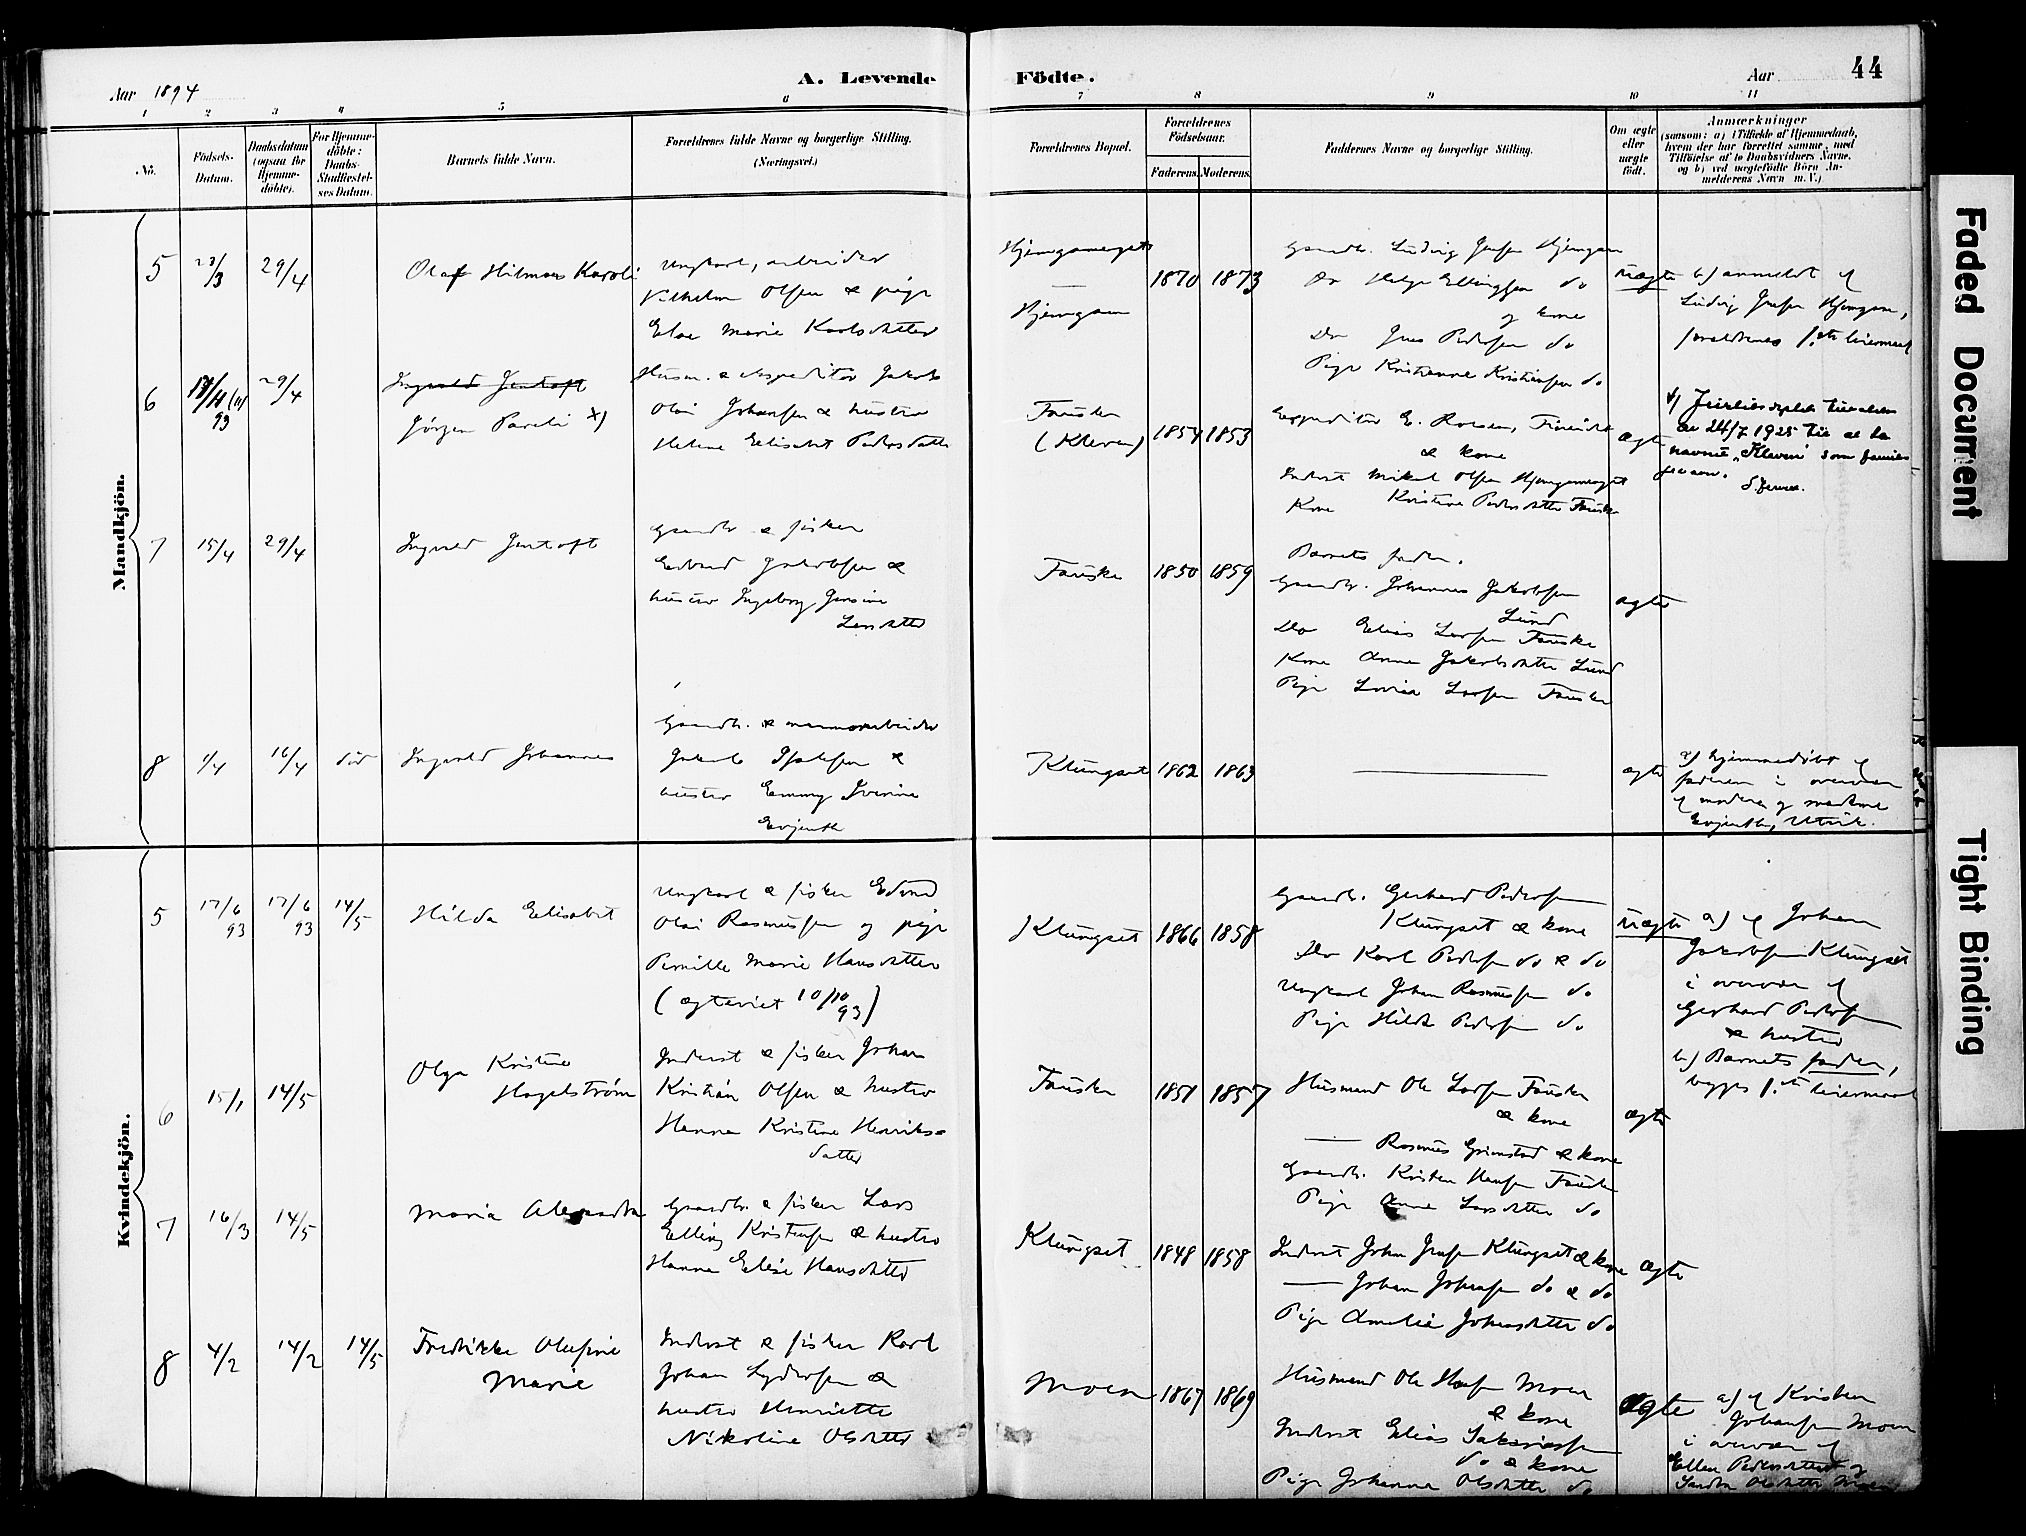 44
A. Levende Födte.
Aar 1894
Aar
1 2 3 4 5 6 7 8 9 10 11
No.
Födsels-Datum.
Daabsdatum (ogsaa for Hjemme-döbte).
For Hjemme-döbte: Daabs-Stadfæstel-ses Datum.
Barnets fulde Navn.
Forældrenes fulde Navne og borgerlige Stilling. (Næringsvei.)
Forældrenes Bopæl.
Forældrenes Födselsaar.
Faderens. Moderens.
Faddernes Navne og borgerlige Stilling.
Om ægte eller uægte födt.
Anmærkninger
(saasom: a) i Tilfælde af Hjemmedaab,
hvem der har forrettet samme, med
Tilföielse af to Daabsvidners Navne,
og b) ved uægtefödte Börn An-
melderens Navn m. V.)
Mandkjön.
5 23/3 29/4
Olaf Hilmar Karoli
Ungkarl, arbeider
Vilhelm Olsen & pige
Else Marie Karlsdatter
Hjemgam
1870 1873
Gaardb. Ludvig Hjemgam
Do Helge Ellingsen do
og kone
Do Jens Pedersen do
Pige Kristianne Kristensen do
Uægte
b) anmeldt af
Ludvig Hjemgam,
forældrenes 1.ste leiermaal
6 93 29/4
Ingvald Jentoft
Jörgen Pareli x)
Husm. & expeditör Jakob
Olai Johansen & hustru
Helene Elisabet Pedersdatter
Fauske
(Kleven)
1854 1853
Expeditör E.
& kone
Inderst Mikal Olsen
Kone Kristine Pedersdatter Fauske
ægte
24/7 1925 til at ta
navnet "Kleven" som familie
7 15/4 29/4
Ingvald Jentoft
Gaardb. & fisker
Edvard Jakobsen &
hustru Ingeborg Jensine
Larsdatter
Fauske
1850 1859
Barnets fader.
Gaardb. Johannes Jakobsen
Lund
Do Elias Larsen Fauske
Kone Anna Jakobsdatter Lund
Pige Lovise Larsen Fauske
ægte
8 1/4 16/4 död
Ingvald Johannes
Gaardb. & marmorarbeider
Jakob &
hustru Emmy Iverine
Evjenth
Klungset
1862 1863
ægte
a) hjemmedöbt af
faderen i overvær
af moderen og madame
Evjenth,
Kvindekjön.
5 17/6 93 17/6 93 14/5
Hilda Elisabet
Ungkarl & fisker Edvard
Olai Rasmussen og pige
Pernille Marie Hansdatter
(ægteviet 10/10 93)
Klungset
1866 1858
Gaardb. Gerhard Pedersen
Klungset & kone
Do Karl Pedersen do & do
Ungkarl Johan Rasmussen do
Pige Hilda Pedersen do
Uægte
a) af Johan
Jakobsen Klungset
i overvær af
Gerhard Pedersen
& hustru
b) Barnets fader,
begges 1.ste leiermaal
6 15/1 14/5
Olga Kristine
Hagelström
Inderst & fisker Johan
Kristian Olsen & hustru
Hanna Kristine Henriks-
datter
Fauske
1851 1857
Husmand Ole Larsen Fauske
& kone
Rasmus Grimstad & kone
Gaardb. Kristen Hansen Fauske
Pige Anne Larsdatter do
ægte
7 16/3 14/5
Maria Alexandra
Gaardb. & fisker Lars
Elling Kristensen & hustru
Hanna Elise Hansdatter
Klungset
1848 1858
Inderst Johan Klungset & kone
Johan Johansen do & do
Pige Amalie Johansdatter do
ægte
8 4/2 14/2 14/5
Fredrikke Olufine
Marie
Inderst & fisker Karl
Johan &
hustru Henriette
Nikoline Olsdatter
Moen
1867 1869
Husmand Ole Moen
& kone
Inderst Elias Sakariassen
do & kone
Pige Johanna Olsdatter do
ægte
a) af Kristen
Johansen Moen
i overvær af
Ellen Pedersdatter og
Olsdatter
Faded Document
Tight Binding